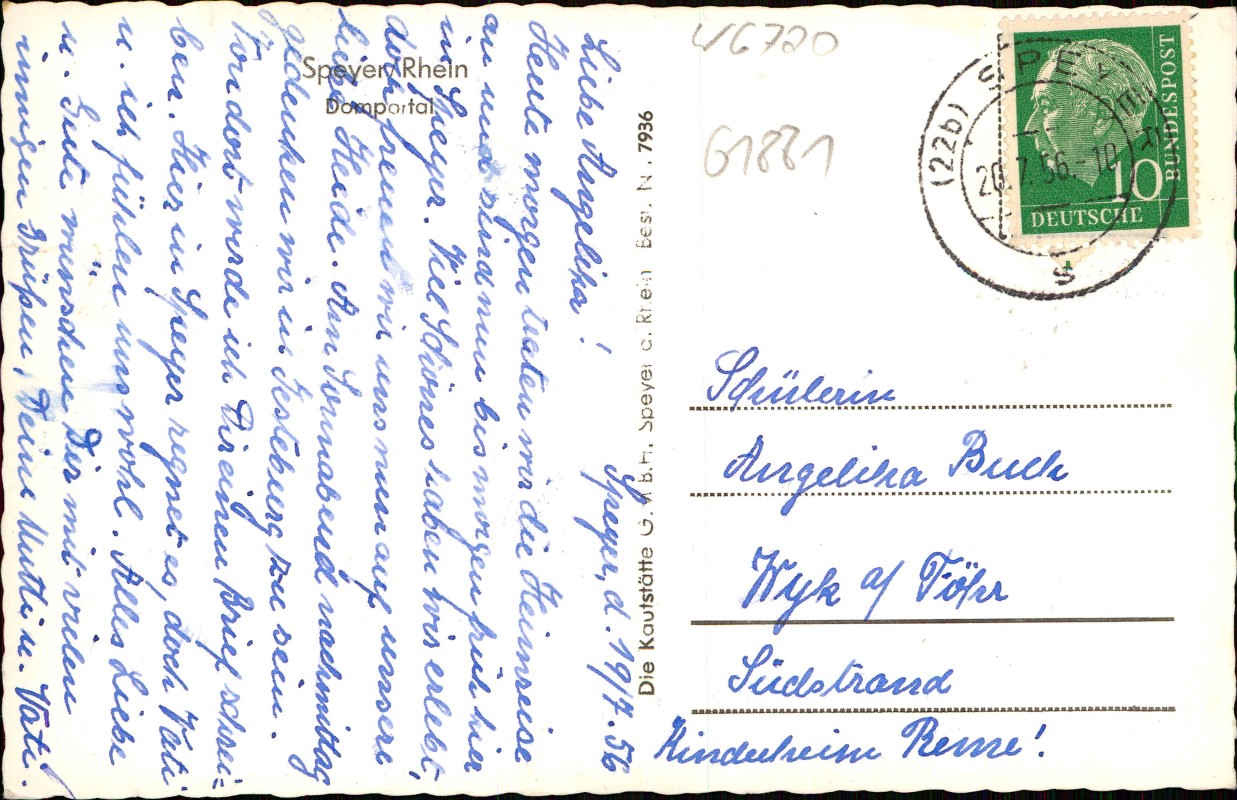 Speyer/Rhein
Domportal
Speyer, d. 19/7. 56
Liebe Angelika!
Heute morgen traten wir die Heimreise
an und sind nun bis morgen früh hier
in Speyer. Viel Schönes haben wir erlebt,
doch freuen wir uns nun auf unsere
liebe Heide. Am Sonnabend nachmittag
gedenken wir in Jesteburg zu sein.
Von dort werde ich Dir einen Brief schrei=
ben. Hier in Speyer regnet es, doch Vati
u. ich fühlen uns wohl. Alles Liebe
u. Gute wünschen Dir mit vielen
innigen Grüßen, Deine Mutti u. Vati.
Die Kaufstätte G.M.B.H. Speyer a. Rhein Best. N. 7936
46720
61881
(22b) SPEYER
20.7.56.-10
s
10
DEUTSCHE
BUNDESPOST
Schülerin
Angelika Buck
Wyk a/ Föhr
Südstrand
Kinderheim Remé!